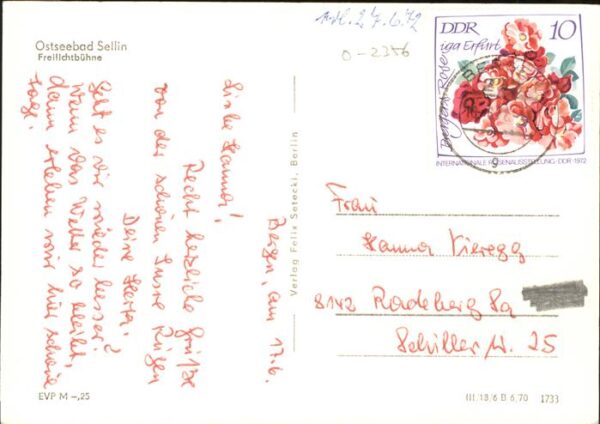 Ostseebad Sellin
Freilichtbühne
24.6.72
O-2356
DDR 10
iga Erfurt
INTERNATIONALE ROSENAUSSTELLUNG · DDR · 1972
Bergen, am 17.6.
Liebe Hanna!
Recht herzliche Grüße
von der schönen Insel Rügen
Deine Herta.
Geht es dir wieder besser?
Wenn das Wetter so bleibt,
dann erleben wir hier schöne
Tage.
Verlag Felix Setecki, Berlin
Frau
Hanna Vieregg
8142 Radeberg Sa
Schiller str. 25
EVP M –,25
III/18/6 B 6/70 1733